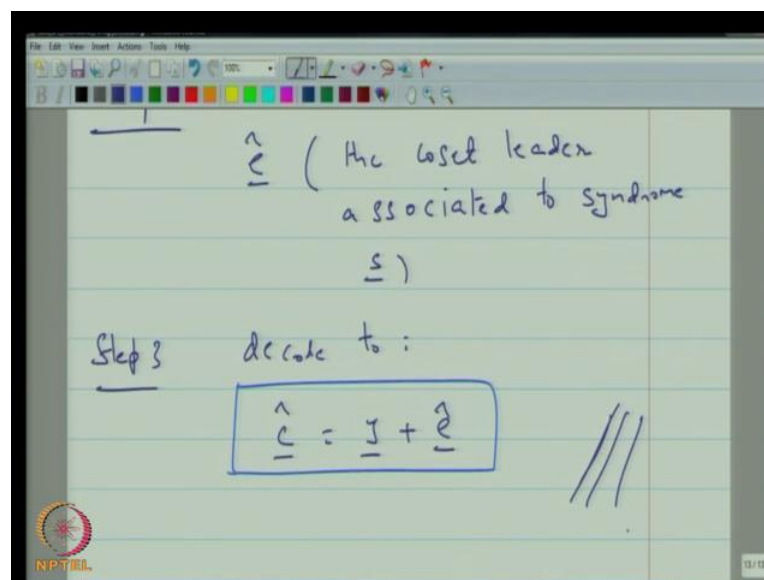 File Edit View Insert Actions Tools Help
100%
ê ( the coset leader
associated to syndrome
s )
Step 3 decode to :
ĉ = y + ê
NPTEL
13/13